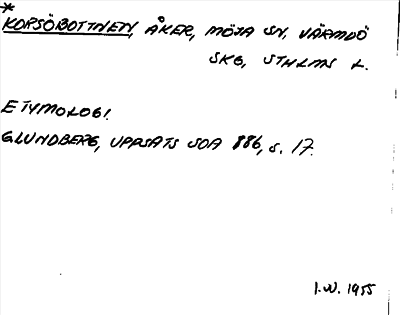 *
KORSÖBOTTNEN, ÅKER, MÖJA SN, VÄRMDÖ
SKG, STHLMS L.
ETYMOLOGI
G LUNDBERG, UPPSATS SOA 886, S. 17.
I.W. 1955